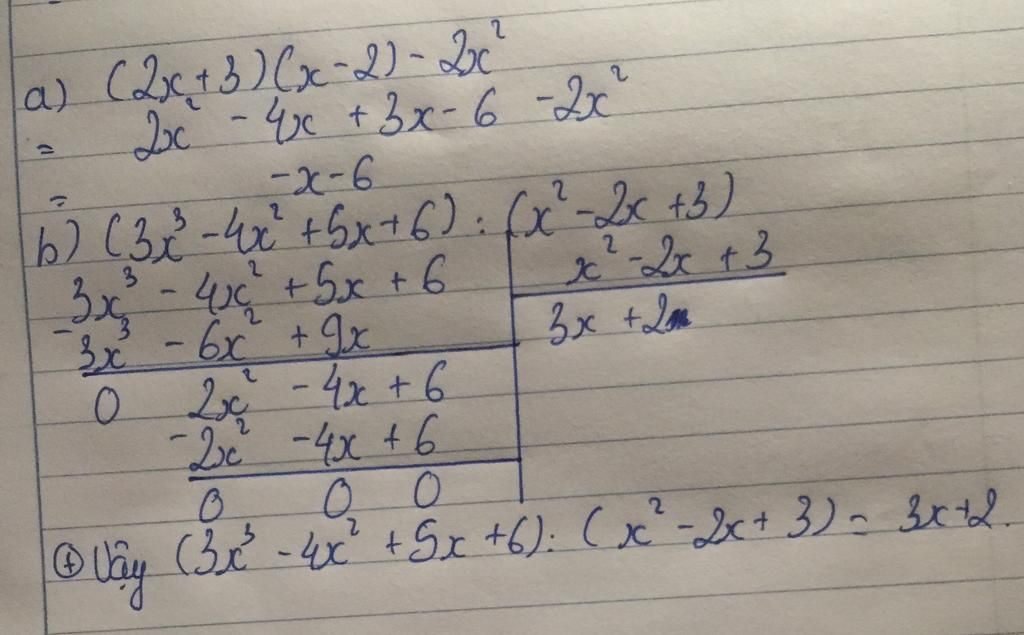 a) (2x+3)(x-2)-2x²
= 2x² - 4x + 3x - 6 - 2x²
= -x-6
b) (3x³ - 4x² + 5x + 6) : (x² - 2x + 3)
3x³ - 4x² + 5x + 6 x² - 2x + 3
- 3x³ - 6x² + 9x 3x + 2
0 2x² - 4x + 6
- 2x² - 4x + 6
0 0 0
⊕ Vậy (3x³ - 4x² + 5x + 6) : (x² - 2x + 3) = 3x+2.